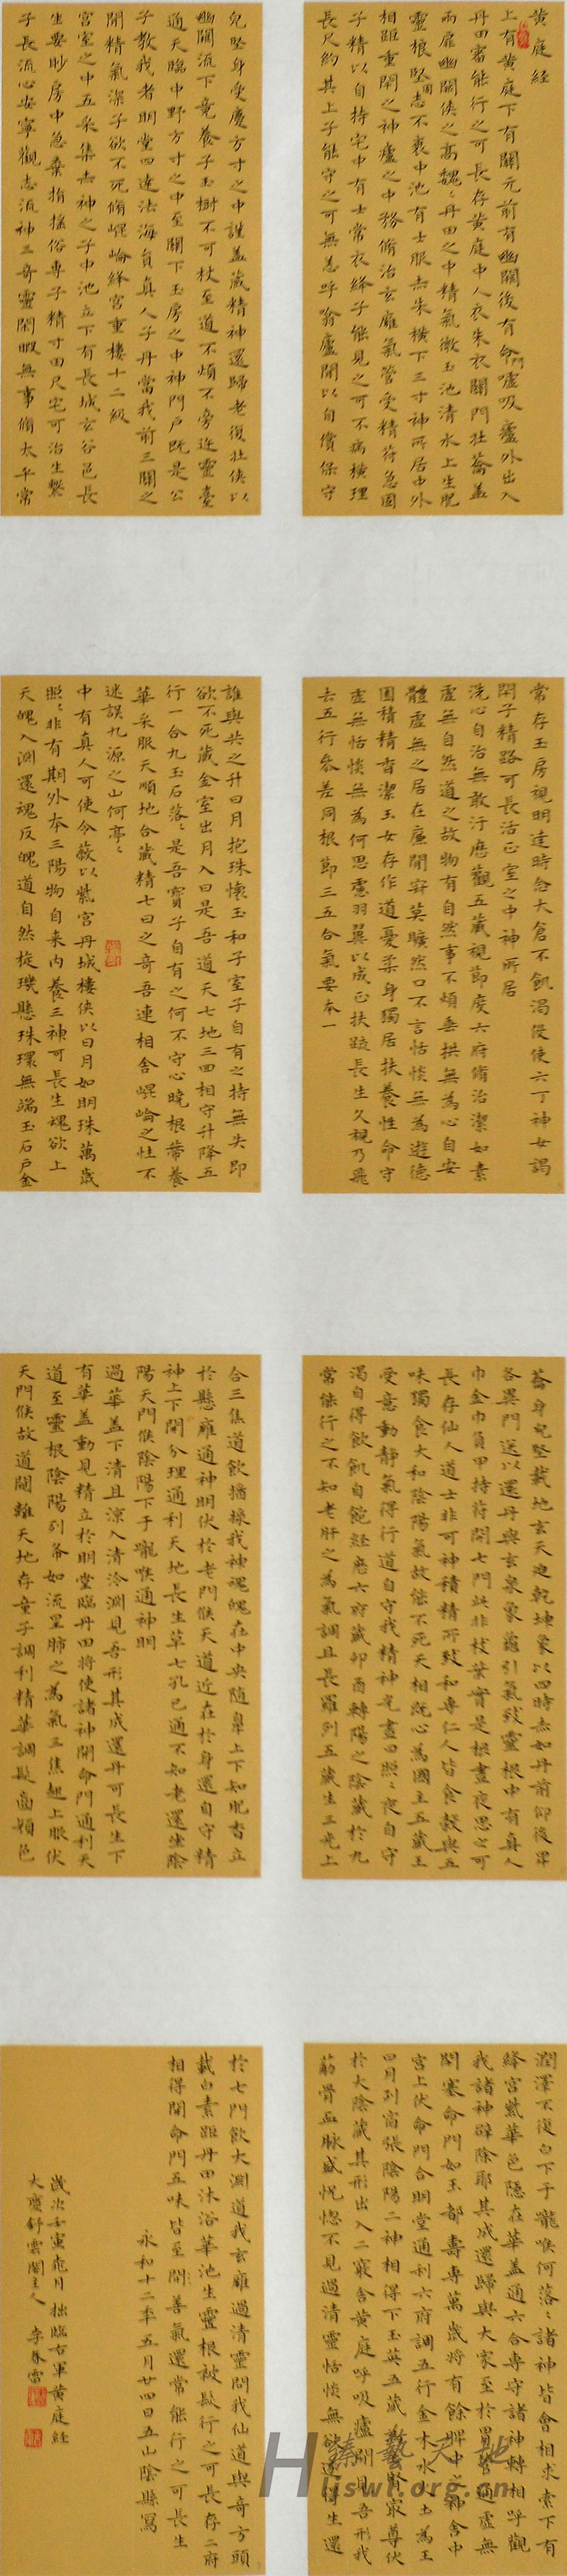 黃庭經
上有黃庭下有關元前有幽關後有命門噓吸廬外出入
丹田審能行之可長存黃庭中人衣朱衣關門壯蘥蓋
兩扉幽關俠之高魏〻丹田之中精氣微玉池清水上生肥
靈根堅固志不衰中池有士服赤朱橫下三寸神所居中外
相距重閇之神廬之中務脩治玄廱氣管受精符急固
子精以自持宅中有士常衣絳子能見之可不病橫理
長尺約其上子能守之可無恙呼噏廬間以自償保守
皃堅身受慶方寸之中謹蓋藏精神還歸老復壯俠以
幽闕流下竟養子玉樹不可杖至道不煩不旁迕靈臺
通天臨中野方寸之中至關下玉房之中神門戶既是公
子教我者明堂四達法海員真人子丹當我前三關之
間精氣深子欲不死脩崐崘絳宮重樓十二級
宮室之中五采集赤神之子中池立下有長城玄谷邑長
生要眇房中急棄捐搖俗專子精寸田尺宅可治生繫
子長流心安寧觀志流神三奇靈閑暇無事脩太平常
常存玉房視明達時念大倉不飢渴役使六丁神女謁
閇子精路可長活正室之中神所居
洗心自治無敢汙歷觀五藏視節度六府脩治潔如素
虛無自然道之故物有自然事不煩垂拱無為心自安
體虛無之居在廉間寂莫曠然口不言恬惔無為遊德
園積精香潔玉女存作道憂柔身獨居扶養性命守
虛無恬惔無為何思慮羽翼以成正扶疏長生久視乃飛
去五行參差同根節三五合氣要本一
誰與共之升日月抱珠懷玉和子室子自有之持無失即
欲不死藏金室出月入日是吾道天七地三回相守升降五
行一合九玉石落〻是吾寶子自有之何不守心曉根蒂養
華采服天順地合藏精七日之奇吾連相舍崐崘之性不
迷誤九源之山何亭〻
中有真人可使令蔽以紫宮丹城樓俠以日月如明珠萬歲
照〻非有期外本三陽物自來內養三神可長生魂欲上
天魄入淵還魂反魄道自然旋璣懸珠環無端玉石戶金
蘥身皃堅載地玄天迫乾坤象以四時赤如丹前仰後卑
各異門送以還丹與玄泉象龜引氣致靈根中有真人
巾金巾負甲持符開七門此非枝葉實是根晝夜思之可
長存仙人道士非可神積精所致和專仁人皆食穀與五
味獨食大和陰陽氣故能不死天相既心為國主五藏王
受意動靜氣得行道自守我精神光晝日照〻夜自守
渴自得飲飢自飽經歷六府藏卯酉轉陽之陰藏於九
常能行之不知老肝之為氣調且長羅列五藏生三光上
合三焦道飲醬漿我神魂魄在中央隨鼻上下知肥香立
於懸雍通神明伏於老門候天道近在於身還自守精
神上下開分理通利天地長生草七孔已通不知老還坐陰
陽天門候陰陽下于嚨喉通神明
過華蓋下清且涼入清泠淵見吾形其成還丹可長生下
有華蓋動見精立於明堂臨丹田將使諸神開命門通利天
道至靈根陰陽列布如流星肺之為氣三焦起上服伏
天門候故道闚離天地存童子調利精華調髮齒顏色
潤澤不復白下于嚨喉何落〻諸神皆會相求索下有
絳宮紫華色隱在華蓋通六合專守諸神轉相呼觀
我諸神辟除耶其成還歸與大家至於胃管通虛無
閇塞命門如玉都壽專萬歲將有餘脾中之神舍中
宮上伏命門合明堂通利六府調五行金木水火土為王
日月列宿張陰陽二神相得下玉英五藏
於大陰藏其形出入二竅舍黃庭呼吸廬間見吾形我
萠骨血脉盛怳惚不見過清靈恬惔無欲遂得生還
於七門飲大淵道我玄廱過清靈問我仙道與奇方頭
載白素距丹田沐浴華池生靈根被髮行之可長存二府
相得開命門五味皆至開善氣還常能行之可長生
永和十二年五月廿四日五山陰縣寫
歲次壬寅 月拙臨右軍黃庭經
大慶舒雲閣主人 李
臻藝天地
Hjswl.org.cn